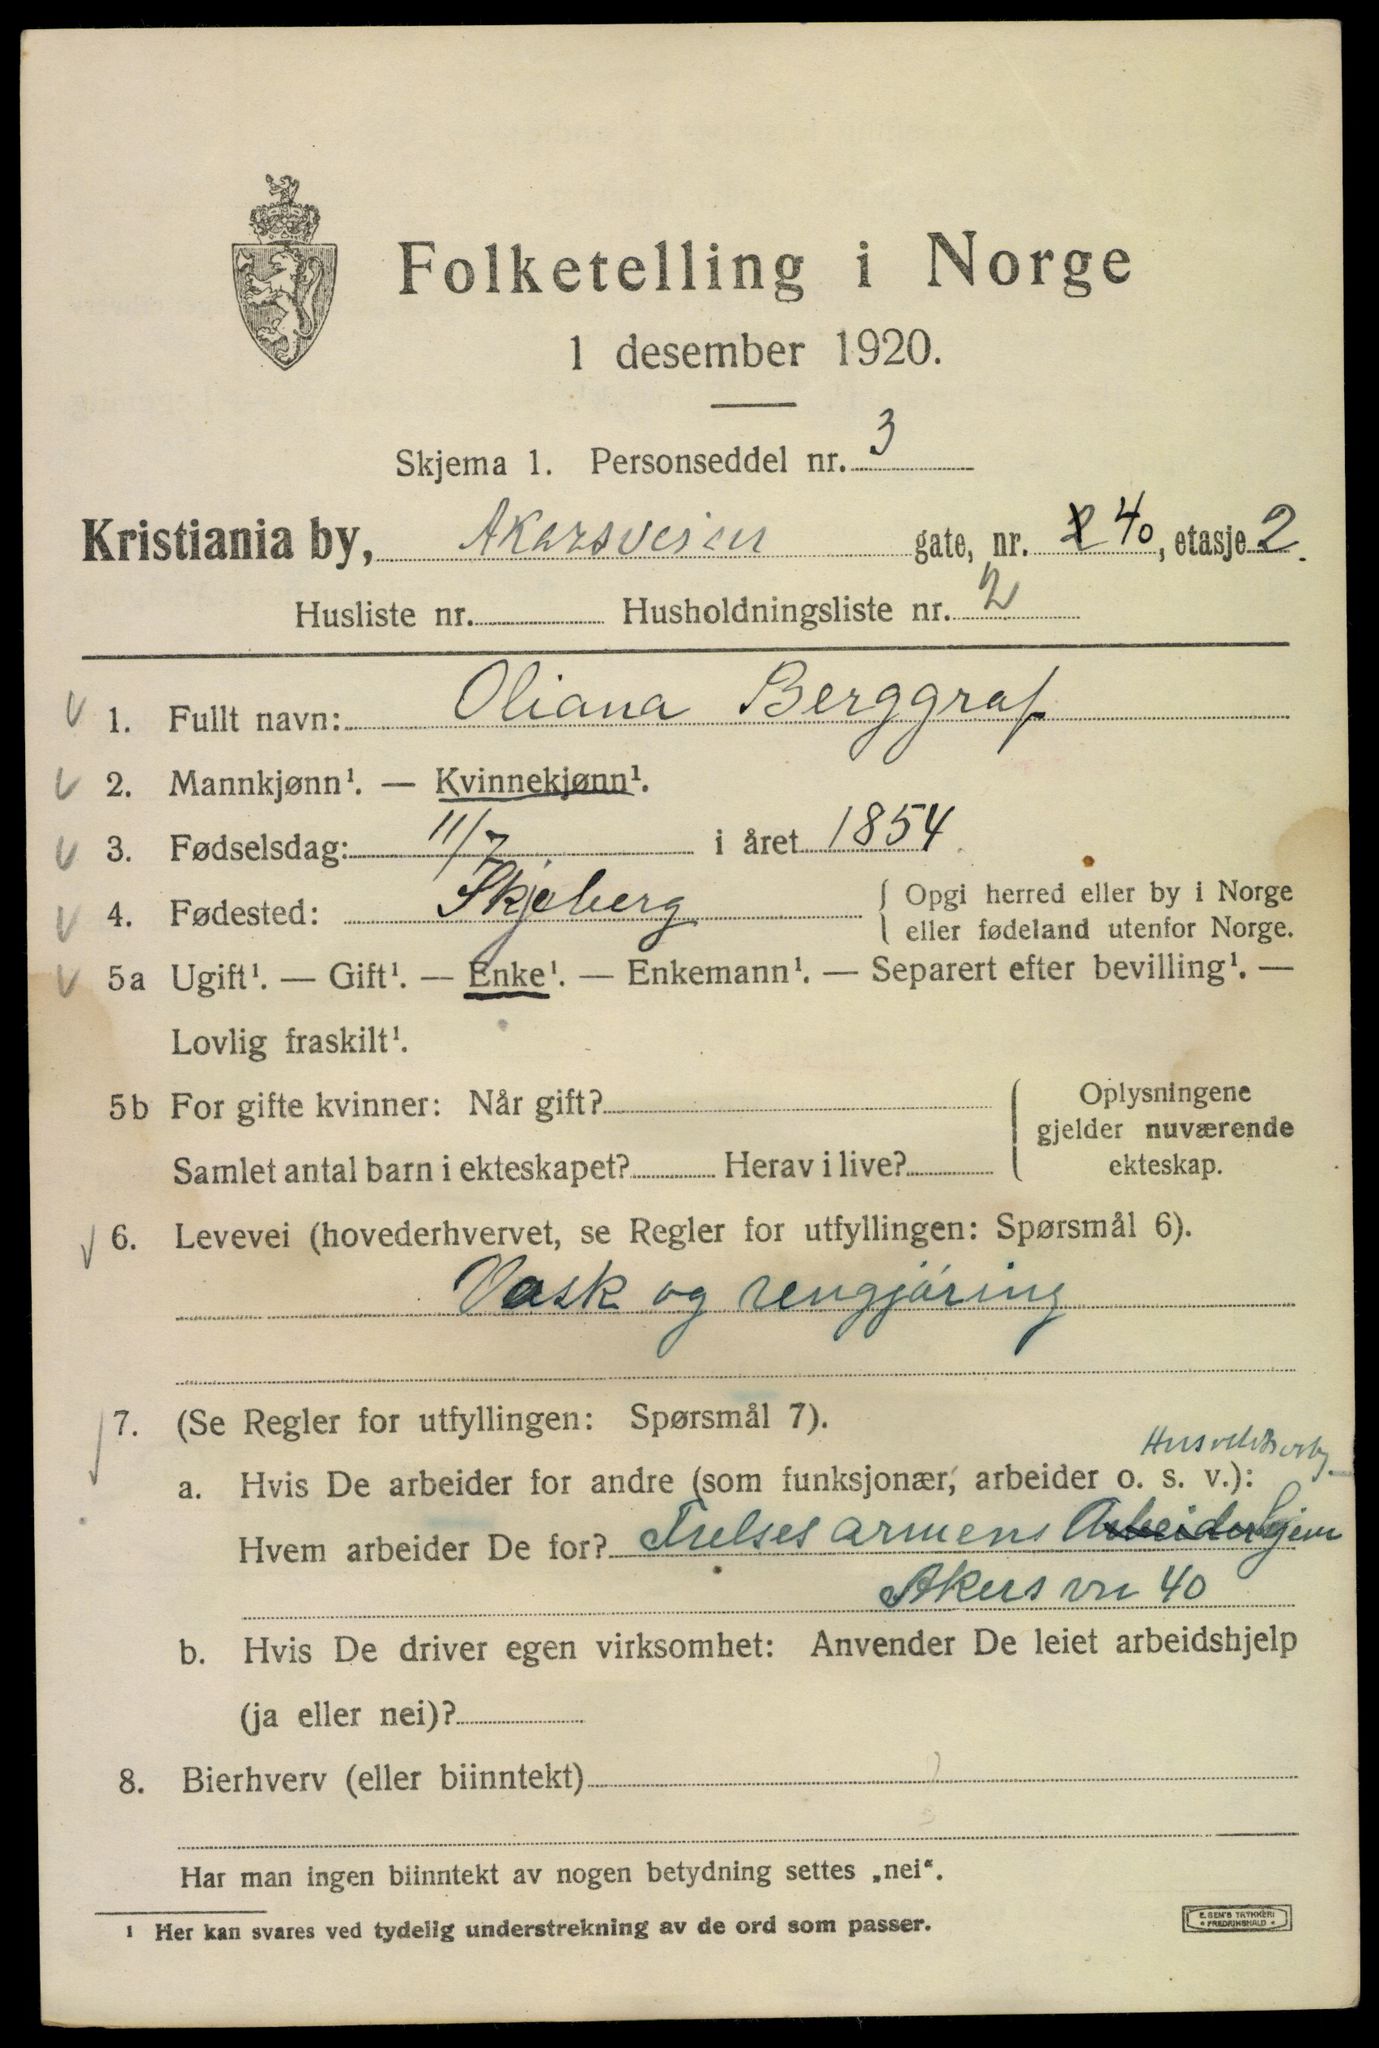 Folketelling i Norge
1 desember 1920.
Skjema 1. Personseddel nr. 3
Kristiania by, Akersveien gate, nr. 2 40, etasje 2.
Husliste nr. Husholdningsliste nr. 2
1. Fullt navn: Oliana Berggraf
2. Mannkjønn¹. — Kvinnekjønn¹.
3. Fødselsdag: 11/7 i året 1854.
4. Fødested: Skjeberg { Opgi herred eller by i Norge
eller fødeland utenfor Norge.
5a Ugift¹. — Gift¹. — Enke¹. — Enkemann¹. — Separert efter bevilling¹. —
Lovlig fraskilt¹.
5b For gifte kvinner: Når gift? Oplysningene
gjelder nuværende
Samlet antal barn i ekteskapet? Herav i live? ekteskap.
6. Levevei (hovederhvervet, se Regler for utfyllingen: Spørsmål 6).
Vask og rengjøring
7. (Se Regler for utfyllingen: Spørsmål 7).
a. Hvis De arbeider for andre (som funksjonær, arbeider o. s. v.):
Hvem arbeider De for? Frelses armens Arbeiderhjem
Akers vn 40
b. Hvis De driver egen virksomhet: Anvender De leiet arbeidshjelp
(ja eller nei)?
8. Bierhverv (eller biinntekt)
Har man ingen biinntekt av nogen betydning settes „nei“.
¹ Her kan svares ved tydelig understrekning av de ord som passer.
E. SEM'S TRYKKERI
FREDRIKSHALD